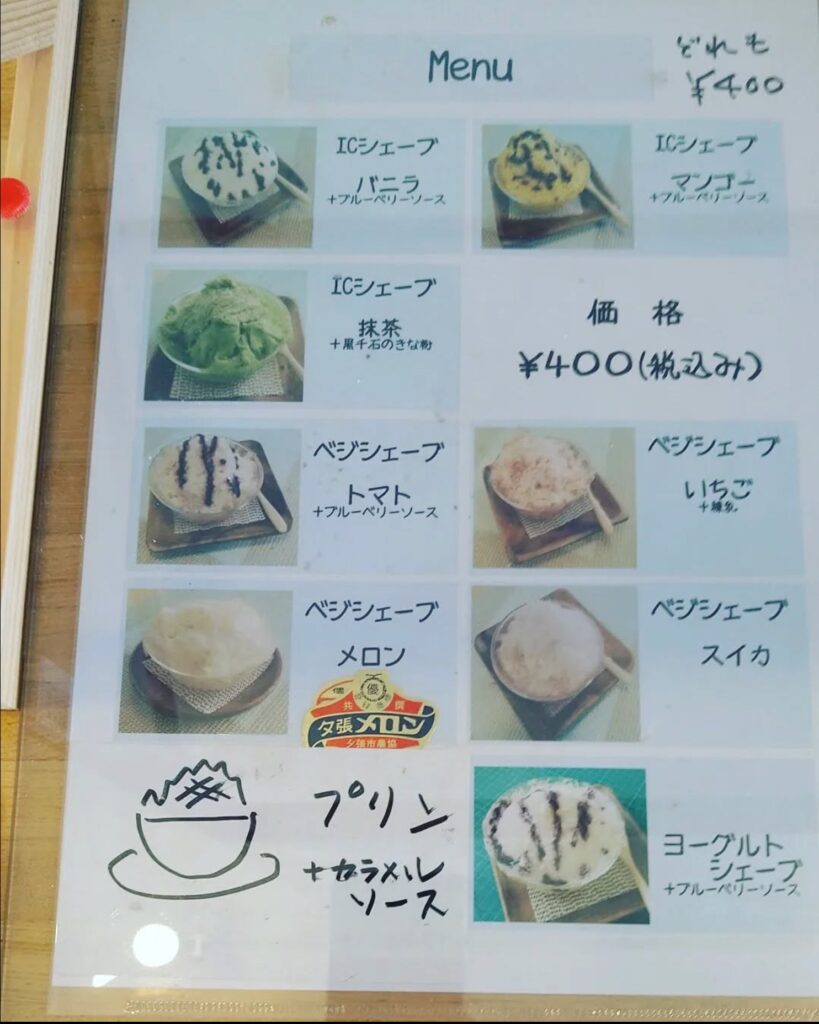 Menu
どれも
¥400
ICシェーブ
バニラ
+ブルーベリーソース
ICシェーブ
マンゴー
+ブルーベリーソース
ICシェーブ
抹茶
+黒千石のきな粉
価格
¥400(税込み)
ベジシェーブ
トマト
+ブルーベリーソース
ベジシェーブ
いちご
+練乳
ベジシェーブ
メロン
優
共 撰
夕張メロン
夕張市農協
ベジシェーブ
スイカ
プリン
+カラメル
ソース
ヨーグルト
シェーブ
+ブルーベリーソース